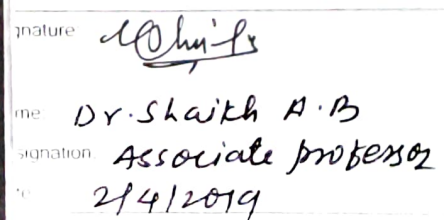 gnature
me Dr. Shaikh A.B
signation Associate professor
2/4/2019